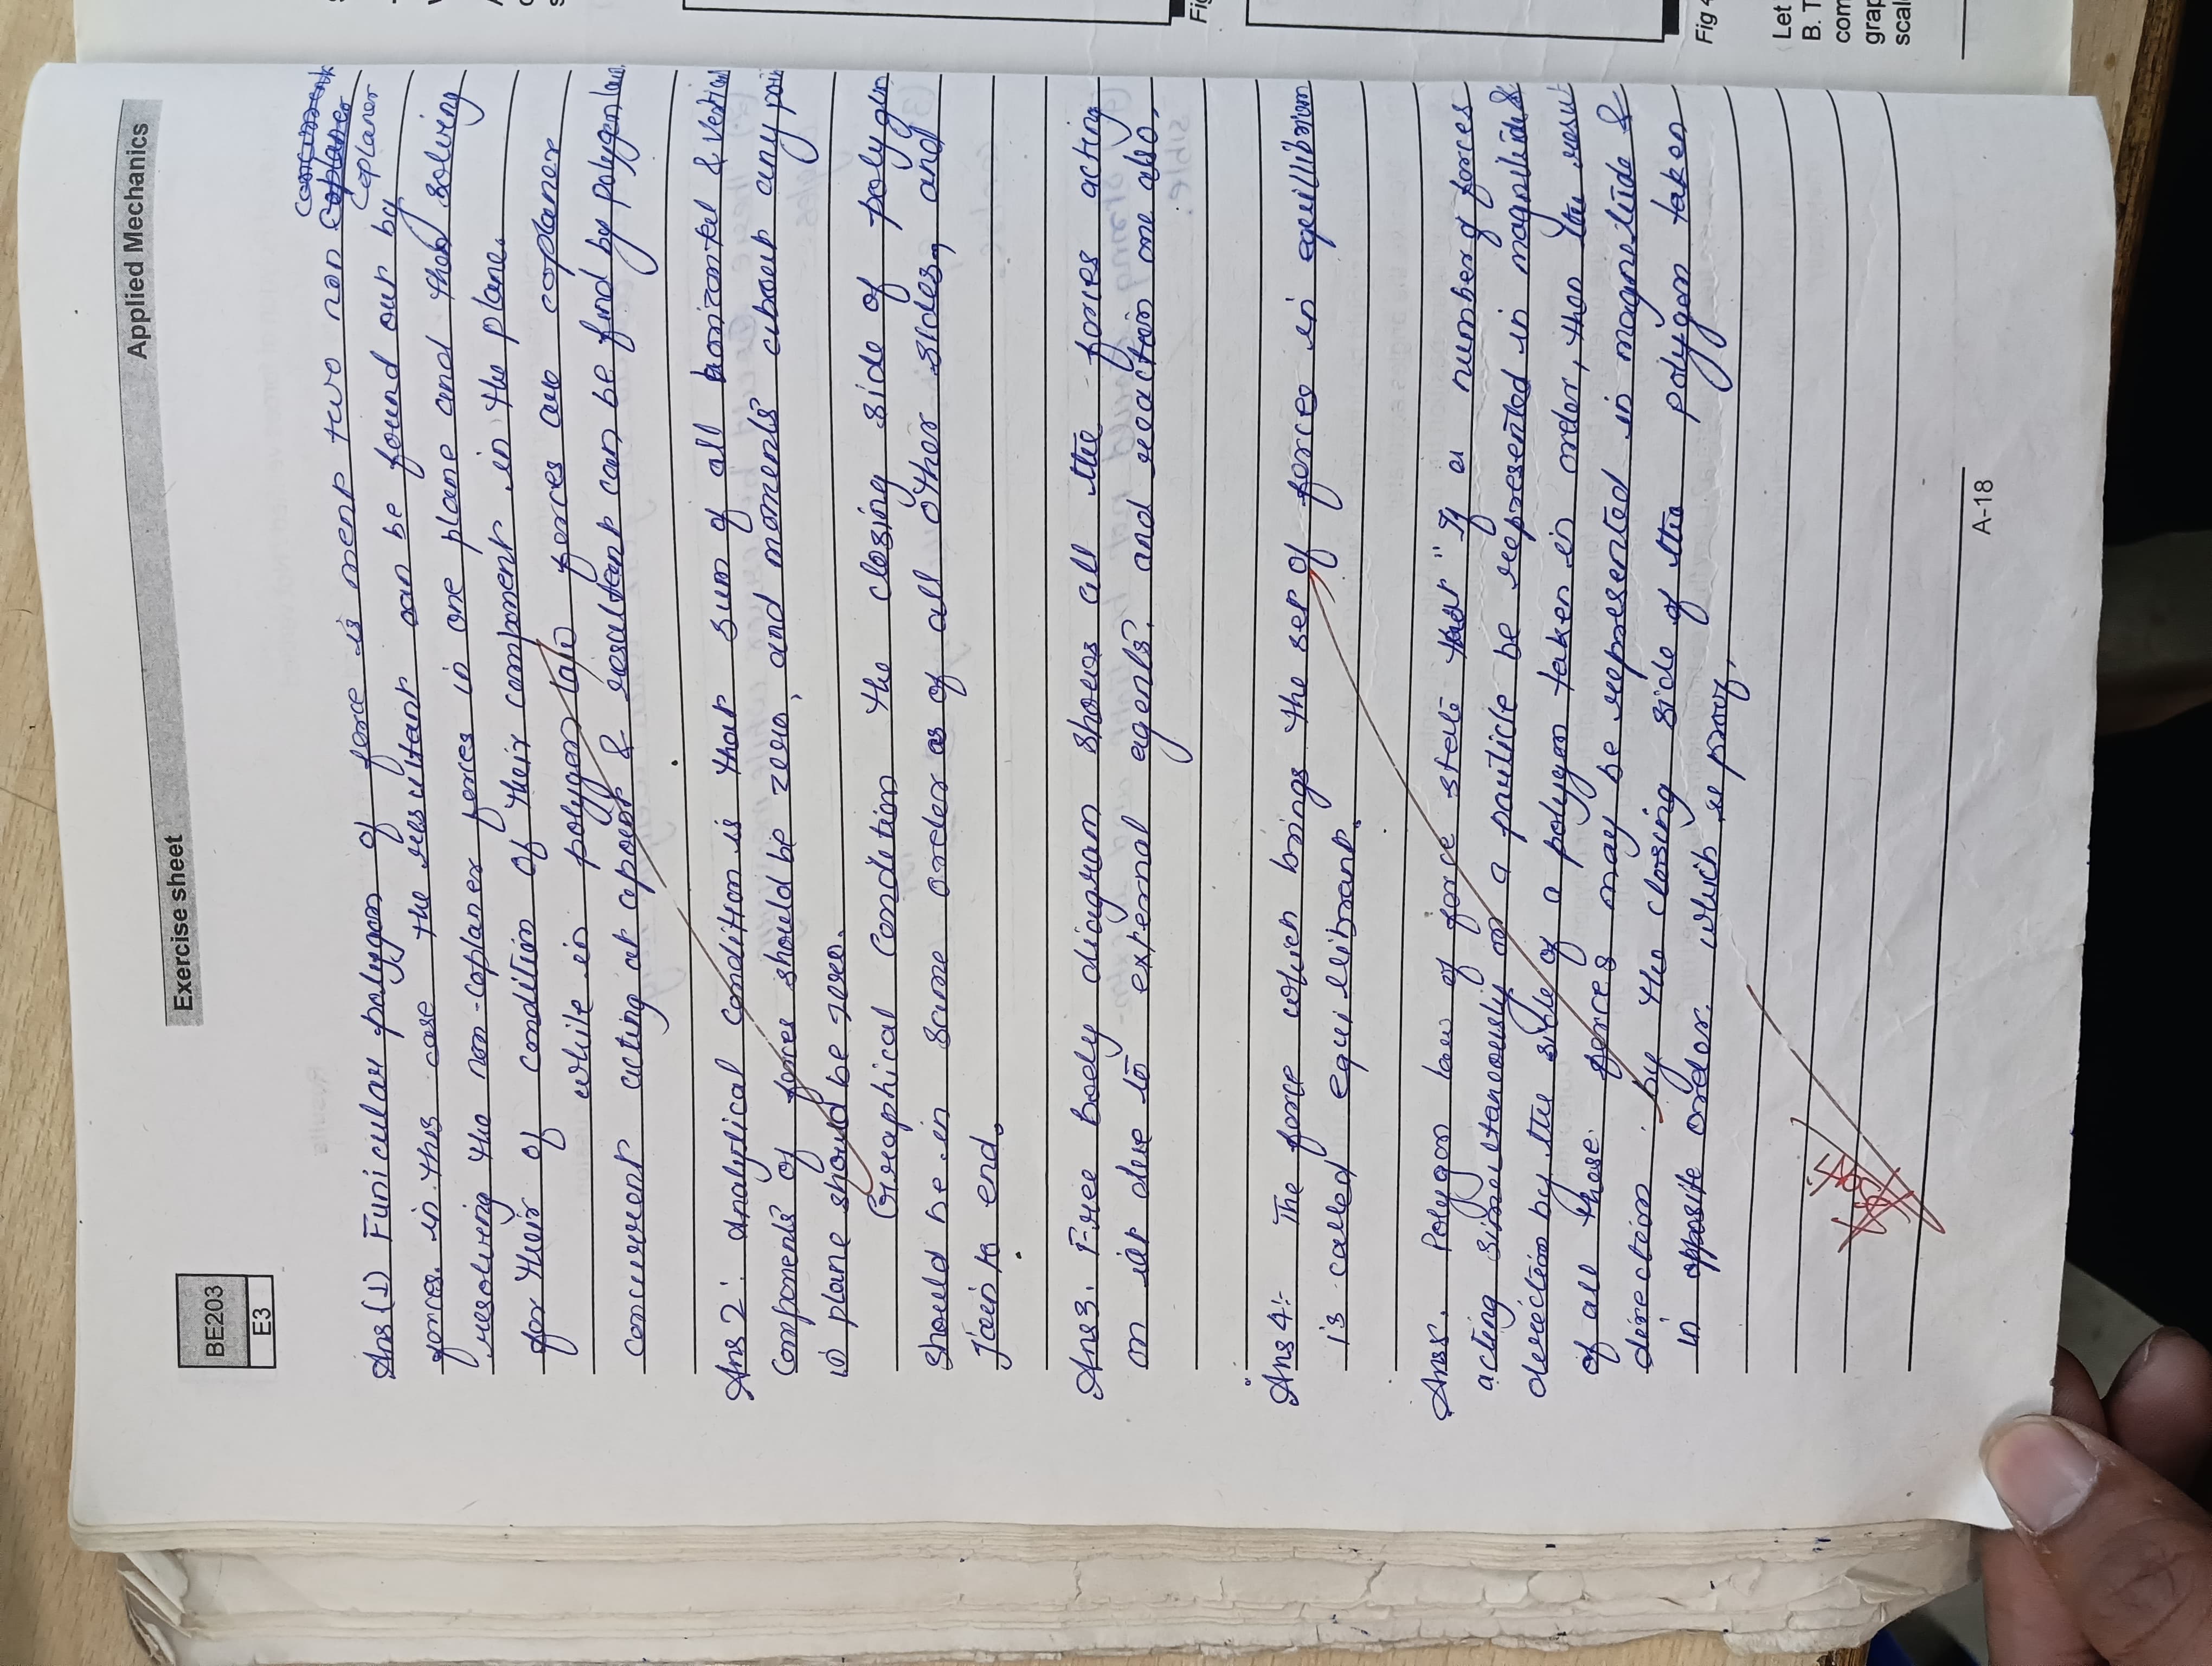 Applied Mechanics
Exercise sheet
BE203
E3
Coplanor
Ans (1) Funicular polygon of force is ment two non
forces. in this case the resultant can be found out by
resolving the non-coplaner forces in one plane and then solving
for their of condition of their component in the plane.
while in polygon law forces are coplanor
concurrent acting at a point & resultant can be find by polygon law.
Ans 2. Analytical condition is that sum of all horizontel & vertical
components of forces should be zero, and moments about any point
in plane should be zero.
Graphical Condition the closing side of polygon
should be in same order as of all other sides, and
Join to end.
Ans 3. Free body diagram shows all the forces acting
on it due to external agents. and reaction one also.
Ans 4:- The force which brings the set of forces in equillibrium
is called equillibrant.
Ans 5. Polygon law of force state that "If a number of forces
acting simultaneously on a particle be represented in magnitude &
direction by the side of a polygon taken in order, then the result
of all these forces may be represented in magnetude &
direction by the closing side of the polygon taken
in opposite order. which is
A-18
Fig
Let
B. T
com
grap
scal